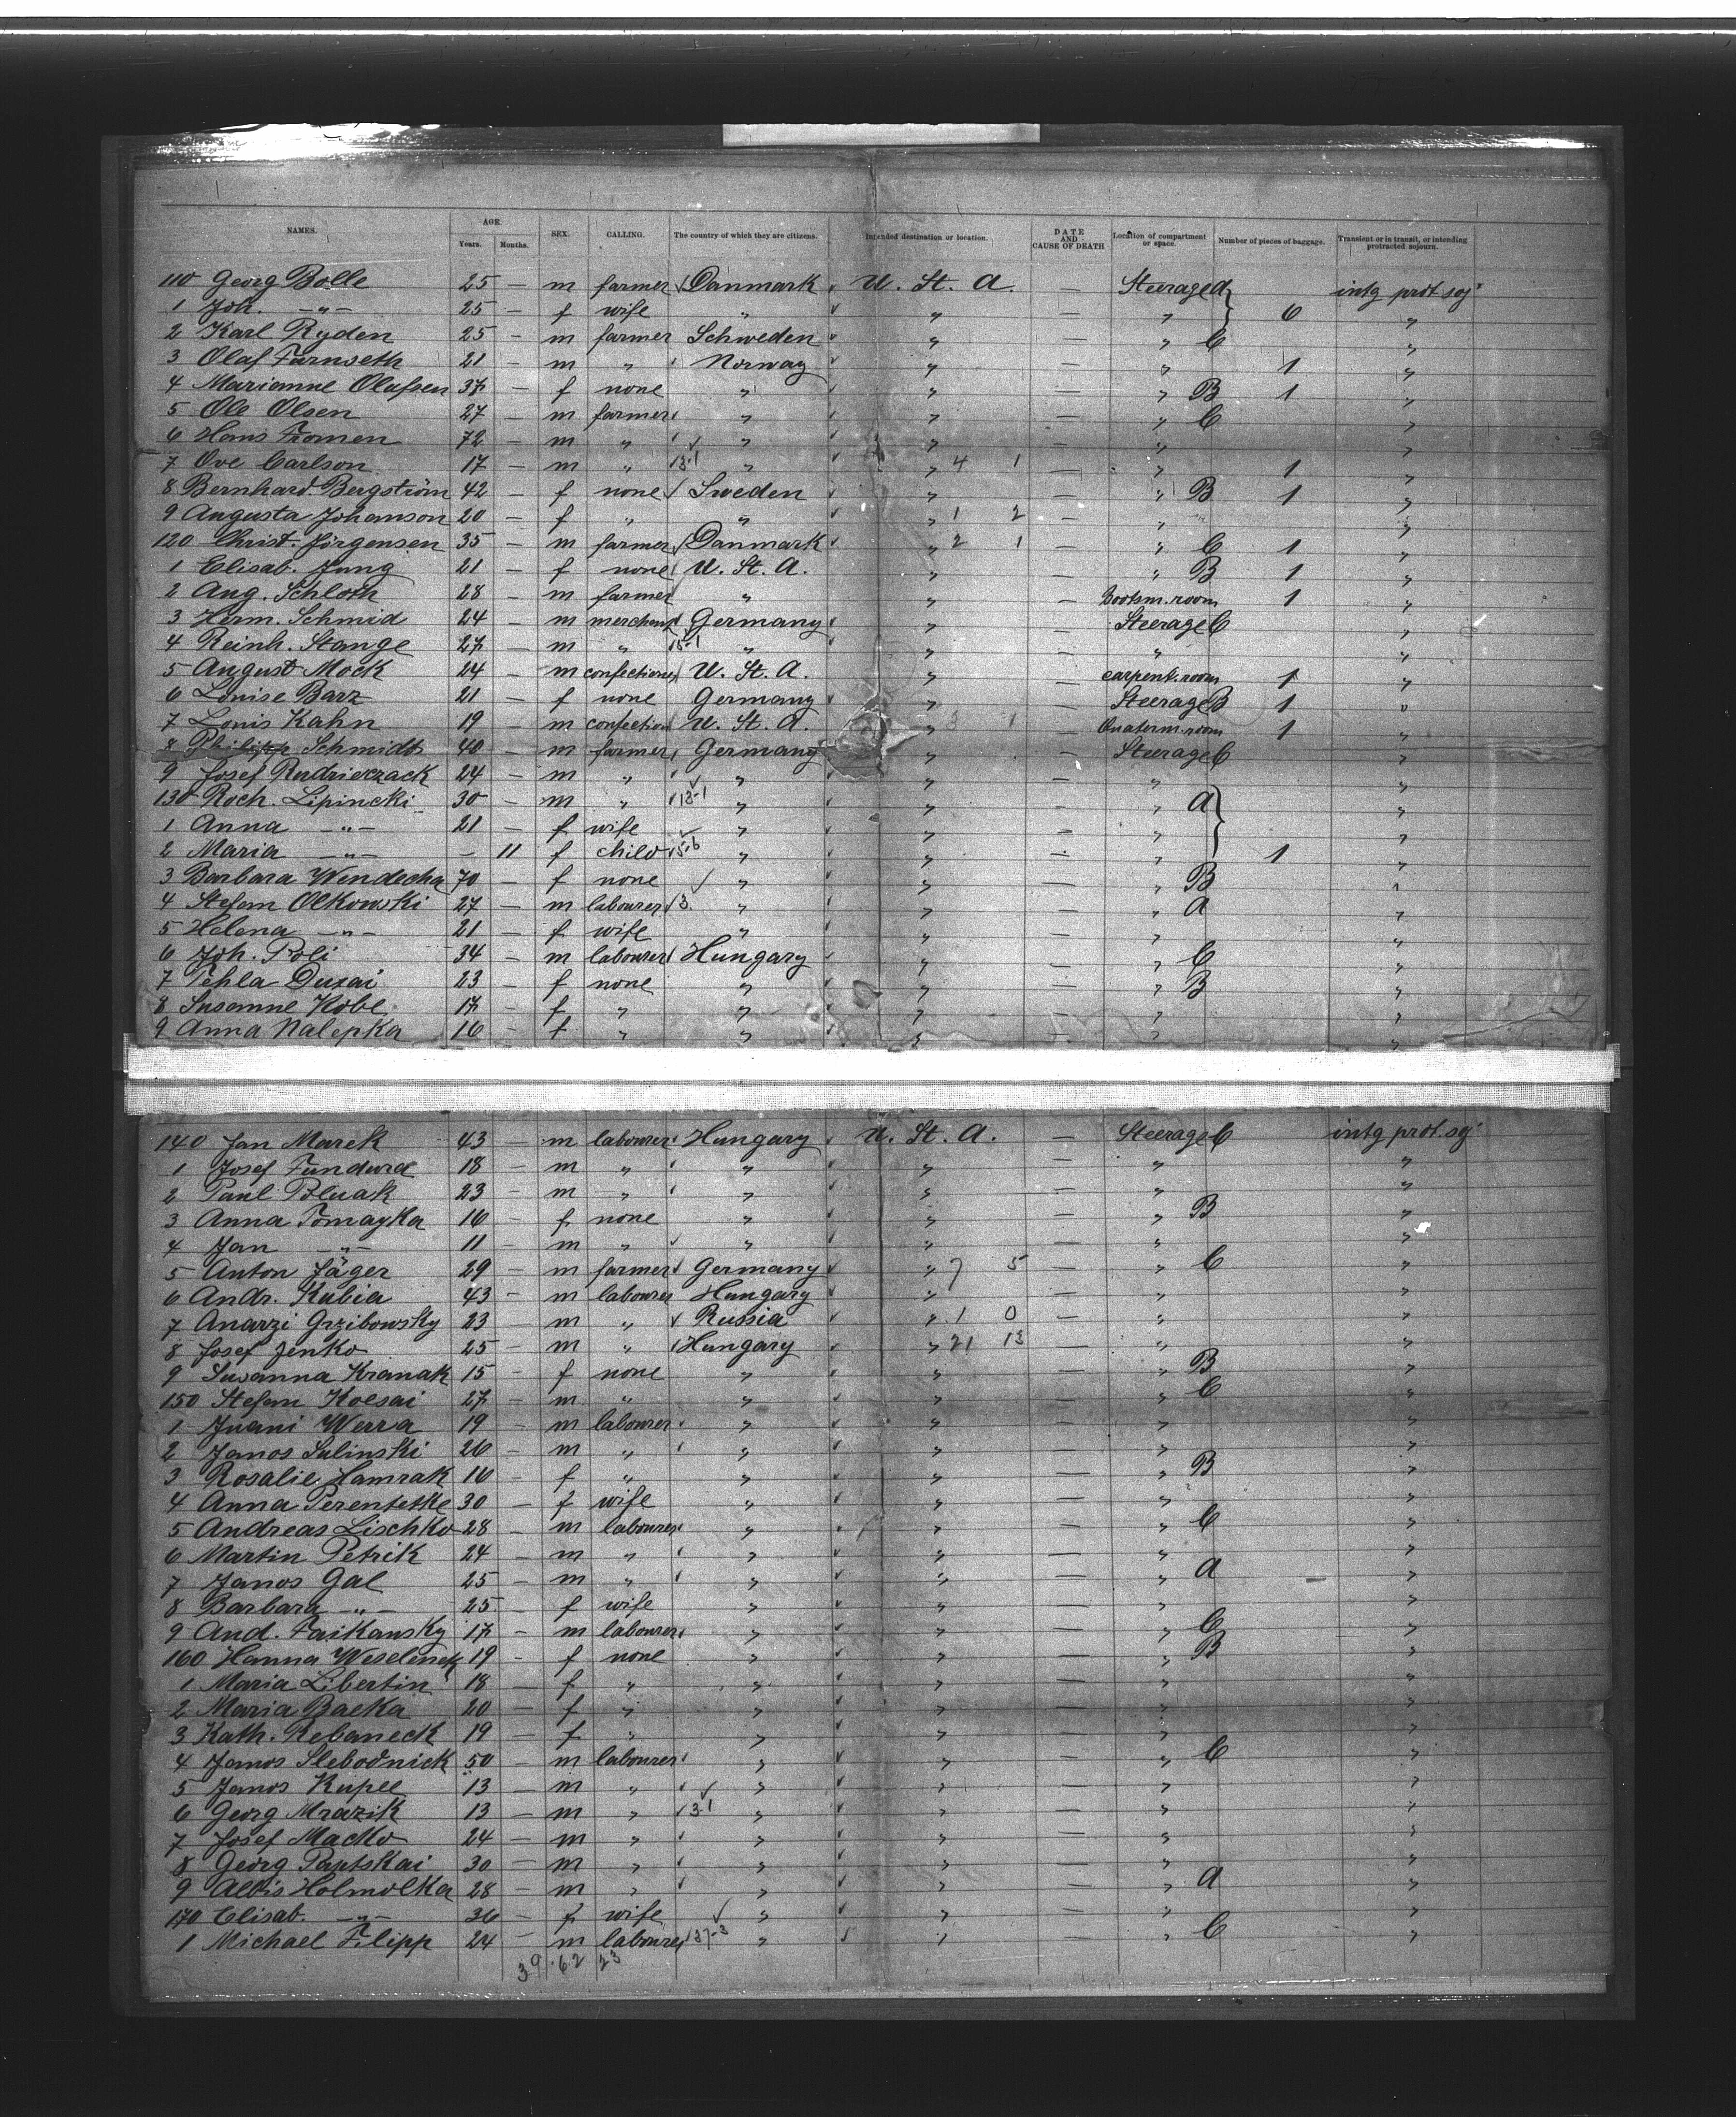 NAMES. AGE. Years. Months. SEX. CALLING. The country of which they are citizens. Intended destination or location. DATE AND CAUSE OF DEATH Location of compartment or space. Number of pieces of baggage. Transient or in transit, or intending protracted sojourn.
110 Georg Bolle 25 — m farmer Danmark U. St. A. — Steerage A intg prot soj
1 Joh. —"— 25 — f wife " " — " 6 "
2 Karl Ryden 25 — m farmer Schweden " — " C "
3 Olaf Farnseth 21 — m " Norway " — " 1 "
4 Marianne Olafsen 37 — f none " " — " B 1 "
5 Ole Olsen 27 — m farmer " " — " C "
6 Hans Fromen 72 — m " " " — " "
7 Ove Carlson 17 — m " 13-1 " " 4 1 — " 1 "
8 Bernhard Bergström 42 — f none Sweden " — " B 1 "
9 Augusta Johanson 20 — f " " " 1 2 — " "
120 Christ. Jörgensen 35 — m farmer Danmark " 2 1 — " C 1 "
1 Elisab. Jung 21 — f none U. St. A. " — " B 1 "
2 Aug. Schloth 28 — m farmer " " — Bootsm. room 1 "
3 Herm. Schmid 24 — m merchant Germany " — Steerage C "
4 Reinh. Stange 27 — m " 15-1 " " — " "
5 August Mock 24 — m confectioner U. St. A. " carpent. room 1 "
6 Louise Barz 21 — f none Germany " — Steerage B 1 "
7 Louis Kahn 19 — m confection U. St. A. " 3 1 — Quaterm. room 1 "
8 Philipp Schmidt 40 — m farmer Germany " Steerage C "
9 Josef Rudrierzack 24 — m " " " — " "
130 Roch. Lipincki 30 — m " 13-1 " " — " A "
1 Anna —"— 21 — f wife " " — " "
2 Maria —"— — 11 f child 15-6 " " — " 1 "
3 Barbara Wendecha 70 — f none " " — " B "
4 Stefan Olkowski 27 — m labourer 13. " " — " A "
5 Helena —"— 21 — f wife " " — " "
6 Joh. Poli 34 — m labourer Hungary " — " C "
7 Tehla Duzai 23 — f none " " — " B "
8 Susanne Kobe 17 — f " " " — " "
9 Anna Nalepka 16 — f " " " "
140 Jan Marek 43 — m labourer Hungary U. St. A. — Steerage C intg prot. soj
1 Josef Fundura 18 — m " " " — " "
2 Paul Pluak 23 — m " " " — " "
3 Anna Tomayka 16 — f none " " — " B "
4 Jan —"— 11 — m " " " — " "
5 Anton Jäger 29 — m farmer Germany " 7 5 — " C "
6 Andr. Kubia 43 — m labourer Hungary " — " "
7 Anarzi Grzibowsky 23 — m " Russia " 1 0 — " "
8 Josef Jenko 25 — m " Hungary " 21 13 " "
9 Susanna Kranak 15 — f none " " — " B "
150 Stefan Kolsai 27 — m " " " — " C "
1 Juani Werra 19 — m labourer " " — " "
2 Janos Sulinski 26 — m " " " — " "
3 Rosalie Hamrak 16 — f " " " — " B "
4 Anna Perentetke 30 — f wife " " — " "
5 Andreas Lischko 28 — m labourer " " — " C "
6 Martin Petrik 24 — m " " " — " "
7 Janos Gal 25 — m " " " — " A "
8 Barbara —"— 25 f wife " " — " "
9 And. Faikansky 17 — m labourer " " — " C "
160 Hanna Weselinek 19 — f none " " — " B "
1 Maria Libertin 18 — f " " " — " "
2 Maria Backa 20 — f " " " — " "
3 Kath. Rebaneck 19 — f " " " — " "
4 Janos Slebodnick 50 — m labourer " " — " C "
5 Janos Kupee 13 — m " " " — " "
6 Georg Mrazik 13 — m " 13-1 " " — " "
7 Josef Macko 24 — m " " " — " "
8 Georg Paptskai 30 — m " " " — " "
9 Albis Holmolka 28 — m " " " — " A "
170 Elisab. —"— 36 — f wife " " — " "
1 Michael Filipp 24 — m labourer 137-3 " " " C "
39 62 23